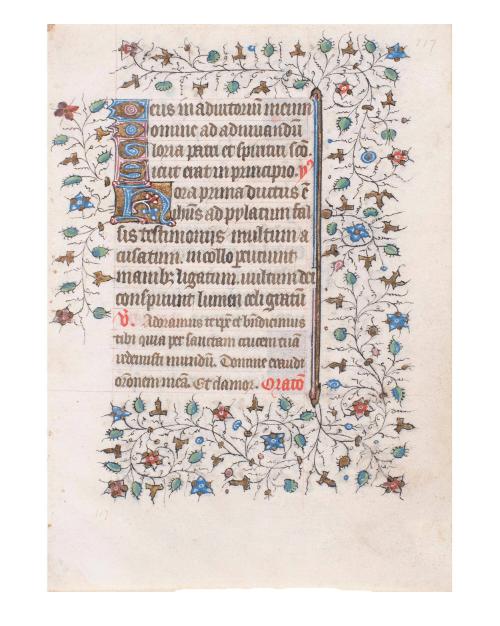 117
Deus in adiutoriū meum
Domine ad adiuuandū
Gloria patri et spiritui scō
Sicut erat in principio. ym̄
Hora prima ductus ē
ihūs ad pylatum fal
sis testimoniis multum a
cusatum. in collo percutiunt
manib; ligatum. uultum dei
conspuunt lumen celi gratū
V̄. Adoramus te xp̄e et b̄ndicimus
tibi quia per sanctam crucem tuā
redemisti mundū. Domine exaudi
orōnem meā. Et clamor. Oratō
117